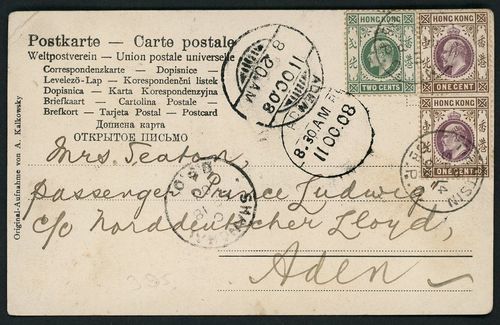 Postkarte — Carte postale
Weltpostverein — Union postale universelle
Correspondenzkarte — Dopisnice
Levelező-Lap — Korespondenční listek
Dopisnica — Karta Korespondenzyjna
Briefkaart — Cartolina Postale —
Brefkort — Tarjeta Postal — Postcard
Дописна карта
ОТКРЫТОЕ ПИСЬМО
Original-Aufnahme von A. Kalkowsky
8 20 AM
11 OC 08
ADEN
8.30 AM
11 OC 08
HONG KONG
TWO CENTS
HONG KONG
ONE CENT
HONG KONG
ONE CENT
Mrs. Seaton,
Passenger Prince Ludwig
c/o Norddeutscher Lloyd,
Aden